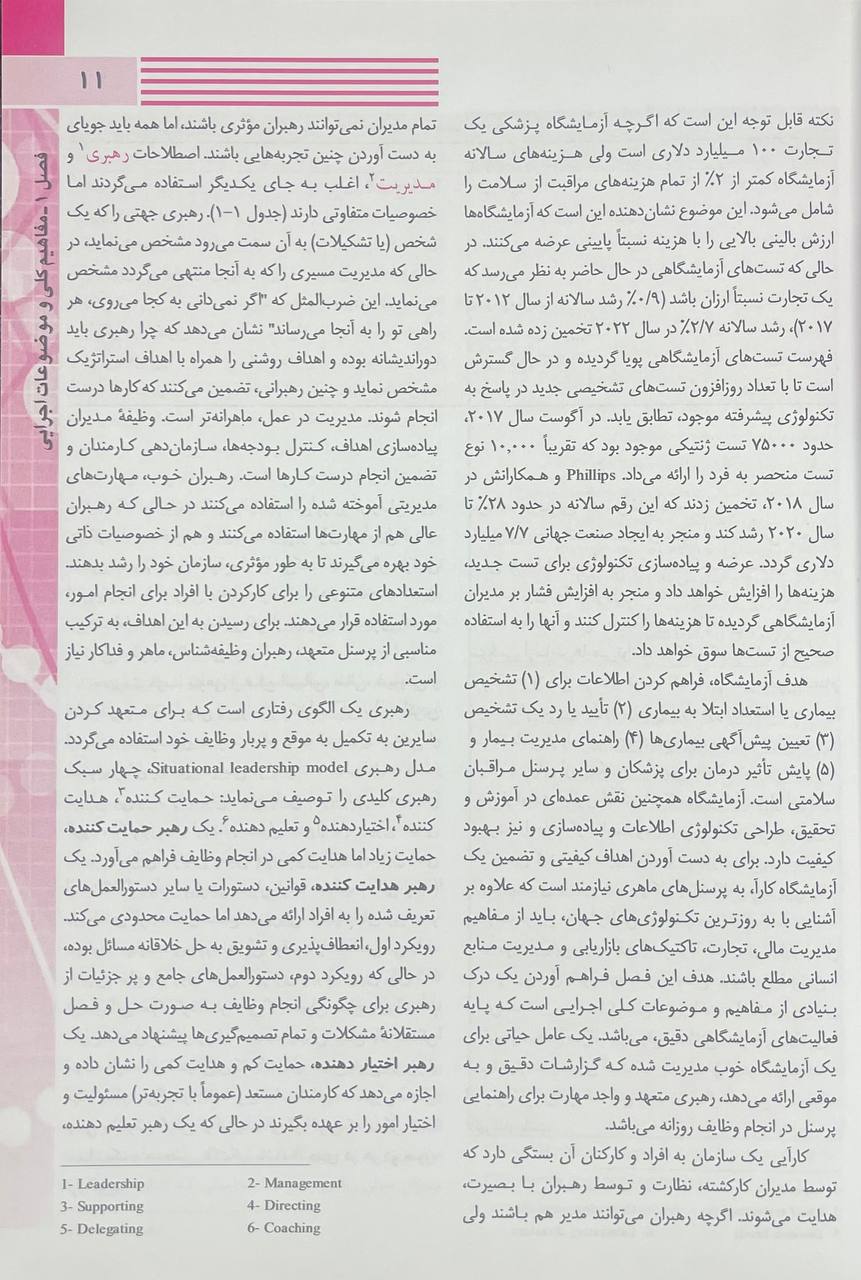 ۱۱
فصل ۱ ـ مفاهیم کلی و موضوعات اجرایی
نکته قابل توجه این است که اگرچه آزمایشگاه پزشکی یک
تجارت ۱۰۰ میلیارد دلاری است ولی هزینه‌های سالانه
آزمایشگاه کمتر از ۲٪ از تمام هزینه‌های مراقبت از سلامت را
شامل می‌شود. این موضوع نشان‌دهنده این است که آزمایشگاه‌ها
ارزش بالینی بالایی را با هزینه نسبتاً پایینی عرضه می‌کنند. در
حالی که تست‌های آزمایشگاهی در حال حاضر به نظر می‌رسد که
یک تجارت نسبتاً ارزان باشد (۰/۹٪ رشد سالانه از سال ۲۰۱۲ تا
۲۰۱۷)، رشد سالانه ۲/۷٪ در سال ۲۰۲۲ تخمین زده شده است.
فهرست تست‌های آزمایشگاهی پویا گردیده و در حال گسترش
است تا با تعداد روزافزون تست‌های تشخیصی جدید در پاسخ به
تکنولوژی پیشرفته موجود، تطابق یابد. در آگوست سال ۲۰۱۷،
حدود ۷۵۰۰۰ تست ژنتیکی موجود بود که تقریباً ۱۰,۰۰۰ نوع
تست منحصر به فرد را ارائه می‌داد. Phillips و همکارانش در
سال ۲۰۱۸، تخمین زدند که این رقم سالانه در حدود ۲۸٪ تا
سال ۲۰۲۰ رشد کند و منجر به ایجاد صنعت جهانی ۷/۷ میلیارد
دلاری گردد. عرضه و پیاده‌سازی تکنولوژی برای تست جدید،
هزینه‌ها را افزایش خواهد داد و منجر به افزایش فشار بر مدیران
آزمایشگاهی گردیده تا هزینه‌ها را کنترل کنند و آنها را به استفاده
صحیح از تست‌ها سوق خواهد داد.
هدف آزمایشگاه، فراهم کردن اطلاعات برای (۱) تشخیص
بیماری یا استعداد ابتلا به بیماری (۲) تأیید یا رد یک تشخیص
(۳) تعیین پیش‌آگهی بیماری‌ها (۴) راهنمای مدیریت بیمار و
(۵) پایش تأثیر درمان برای پزشکان و سایر پرسنل مراقبان
سلامتی است. آزمایشگاه همچنین نقش عمده‌ای در آموزش و
تحقیق، طراحی تکنولوژی اطلاعات و پیاده‌سازی و نیز بهبود
کیفیت دارد. برای به دست آوردن اهداف کیفیتی و تضمین یک
آزمایشگاه کارآ، به پرسنل‌های ماهری نیازمند است که علاوه بر
آشنایی با به روزترین تکنولوژی‌های جهان، باید از مفاهیم
مدیریت مالی، تجارت، تاکتیک‌های بازاریابی و مدیریت منابع
انسانی مطلع باشند. هدف این فصل فراهم آوردن یک درک
بنیادی از مفاهیم و موضوعات کلی اجرایی است که پایه
فعالیت‌های آزمایشگاهی دقیق، می‌باشد. یک عامل حیاتی برای
یک آزمایشگاه خوب مدیریت شده که گزارشات دقیق و به
موقعی ارائه می‌دهد، رهبری متعهد و واجد مهارت برای راهنمایی
پرسنل در انجام وظایف روزانه می‌باشد.
کارآیی یک سازمان به افراد و کارکنان آن بستگی دارد که
توسط مدیران کارکشته، نظارت و توسط رهبران با بصیرت،
هدایت می‌شوند. اگرچه رهبران می‌توانند مدیر هم باشند ولی
تمام مدیران نمی‌توانند رهبران مؤثری باشند، اما همه باید جویای
به دست آوردن چنین تجربه‌هایی باشند. اصطلاحات رهبری۱ و
مدیریت۲، اغلب به جای یکدیگر استفاده می‌گردند اما
خصوصیات متفاوتی دارند (جدول ۱-۱). رهبری جهتی را که یک
شخص (یا تشکیلات) به آن سمت می‌رود مشخص می‌نماید، در
حالی که مدیریت مسیری را که به آنجا منتهی می‌گردد مشخص
می‌نماید. این ضرب‌المثل که "اگر نمی‌دانی به کجا می‌روی، هر
راهی تو را به آنجا می‌رساند" نشان می‌دهد که چرا رهبری باید
دوراندیشانه بوده و اهداف روشنی را همراه با اهداف استراتژیک
مشخص نماید و چنین رهبرانی، تضمین می‌کنند که کارها درست
انجام شوند. مدیریت در عمل، ماهرانه‌تر است. وظیفهٔ مدیران
پیاده‌سازی اهداف، کنترل بودجه‌ها، سازمان‌دهی کارمندان و
تضمین انجام درست کارها است. رهبران خوب، مهارت‌های
مدیریتی آموخته شده را استفاده می‌کنند در حالی که رهبران
عالی هم از مهارت‌ها استفاده می‌کنند و هم از خصوصیات ذاتی
خود بهره می‌گیرند تا به طور مؤثری، سازمان خود را رشد بدهند.
استعدادهای متنوعی را برای کارکردن با افراد برای انجام امور،
مورد استفاده قرار می‌دهند. برای رسیدن به این اهداف، به ترکیب
مناسبی از پرسنل متعهد، رهبران وظیفه‌شناس، ماهر و فداکار نیاز
است.
رهبری یک الگوی رفتاری است که برای متعهد کردن
سایرین به تکمیل به موقع و پربار وظایف خود استفاده می‌گردد.
مدل رهبری Situational leadership model، چهار سبک
رهبری کلیدی را توصیف می‌نماید: حمایت کننده۳، هدایت
کننده۴، اختیاردهنده۵ و تعلیم دهنده۶. یک رهبر حمایت کننده،
حمایت زیاد اما هدایت کمی در انجام وظایف فراهم می‌آورد. یک
رهبر هدایت کننده، قوانین، دستورات یا سایر دستورالعمل‌های
تعریف شده را به افراد ارائه می‌دهد اما حمایت محدودی می‌کند.
رویکرد اول، انعطاف‌پذیری و تشویق به حل خلاقانه مسائل بوده،
در حالی که رویکرد دوم، دستورالعمل‌های جامع و پر جزئیات از
رهبری برای چگونگی انجام وظایف به صورت حل و فصل
مستقلانهٔ مشکلات و تمام تصمیم‌گیری‌ها پیشنهاد می‌دهد. یک
رهبر اختیار دهنده، حمایت کم و هدایت کمی را نشان داده و
اجازه می‌دهد که کارمندان مستعد (عموماً با تجربه‌تر) مسئولیت و
اختیار امور را بر عهده بگیرند در حالی که یک رهبر تعلیم دهنده،
1- Leadership 2- Management
3- Supporting 4- Directing
5- Delegating 6- Coaching